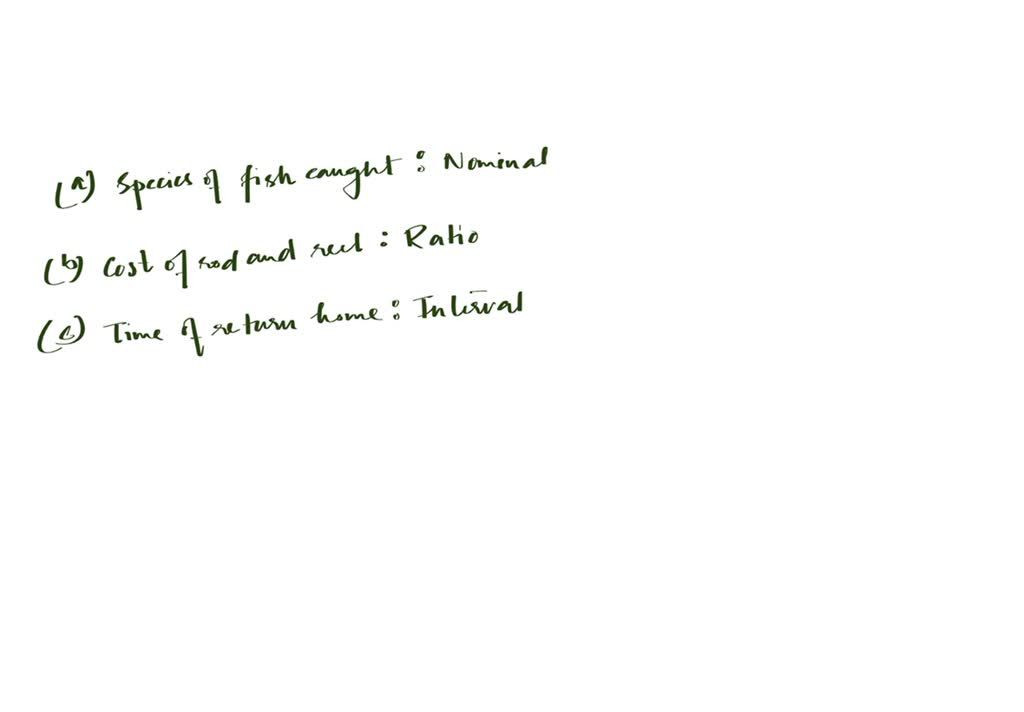 (a) Species of fish caught : Nominal
(b) Cost of rod and reel : Ratio
(c) Time of return home : Interval